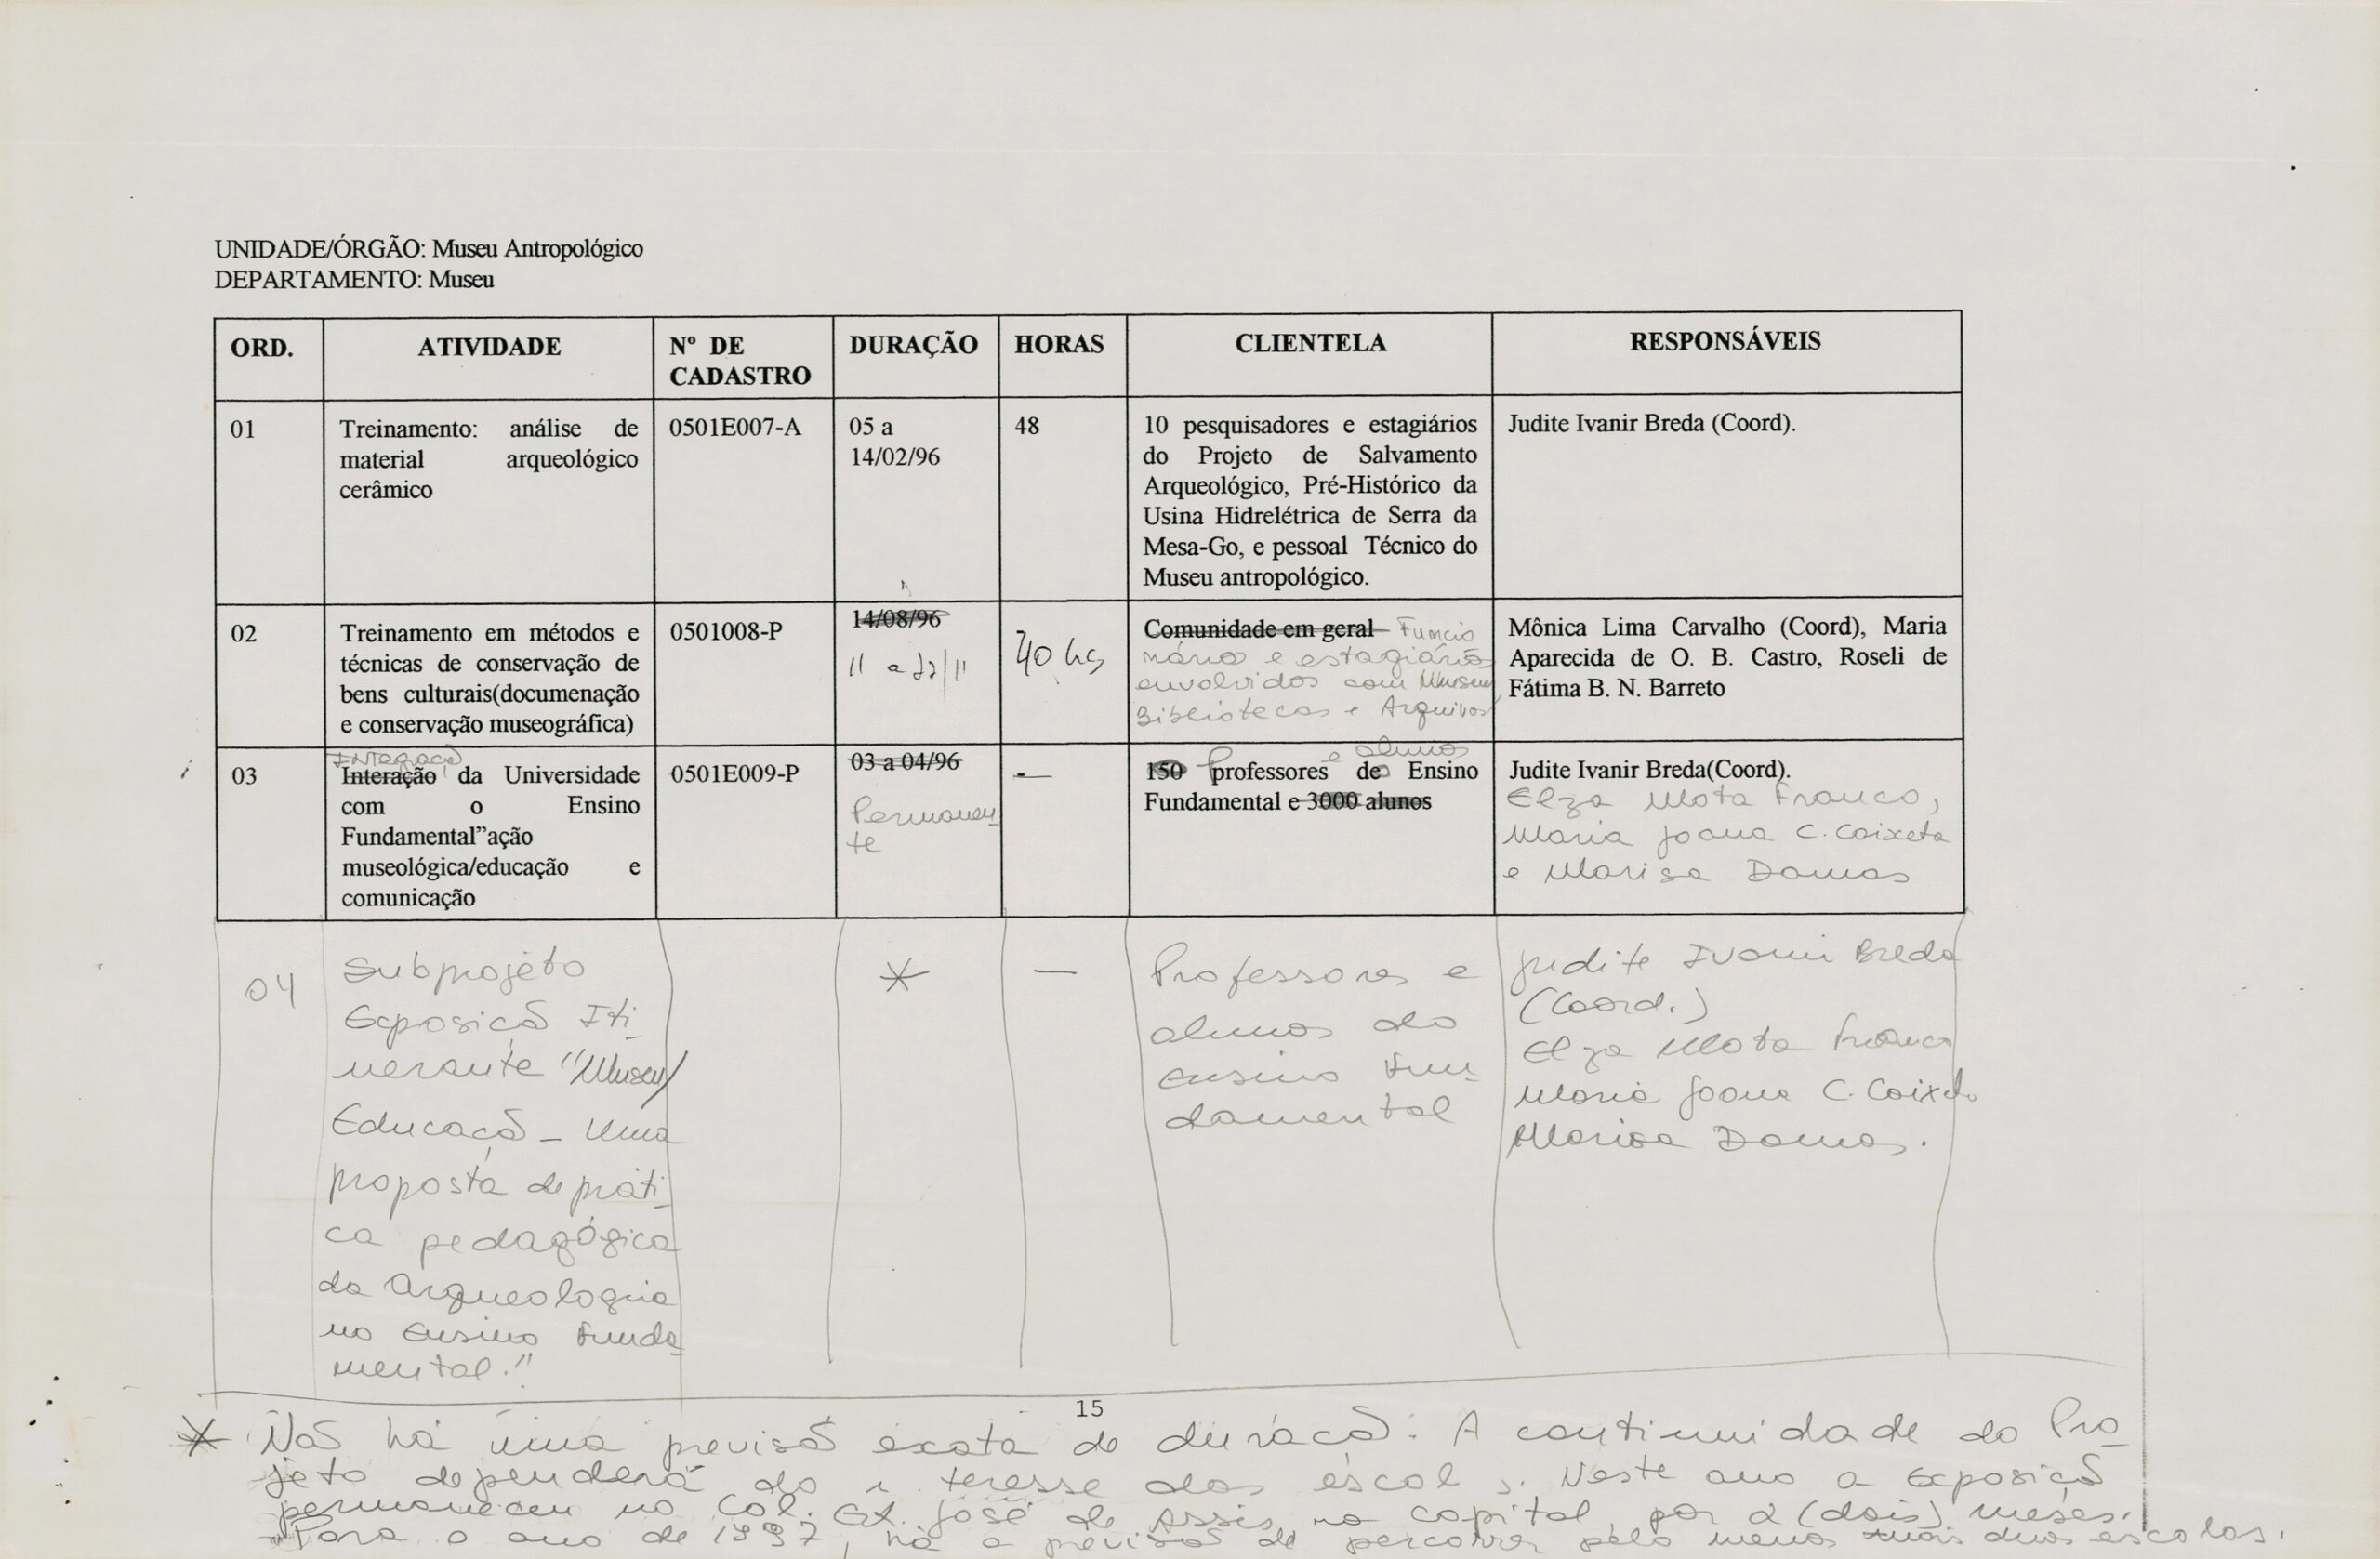 UNIDADE/ÓRGÃO: Museu Antropológico
DEPARTAMENTO: Museu
ORD.
ATIVIDADE
Nº DE
CADASTRO
DURAÇÃO
HORAS
CLIENTELA
RESPONSÁVEIS
01
Treinamento: análise de
material arqueológico
cerâmico
0501E007-A
05 a
14/02/96
48
10 pesquisadores e estagiários
do Projeto de Salvamento
Arqueológico, Pré-Histórico da
Usina Hidrelétrica de Serra da
Mesa-Go, e pessoal Técnico do
Museu antropológico.
Judite Ivanir Breda (Coord).
02
Treinamento em métodos e
técnicas de conservação de
bens culturais(documenação
e conservação museográfica)
0501008-P
14/08/96
11 a 22/11
40 hs
Comunidade em geral Funcio
nários e estagiários
envolvidos com Museu,
Bibliotecas e Arquivos
Mônica Lima Carvalho (Coord), Maria
Aparecida de O. B. Castro, Roseli de
Fátima B. N. Barreto
03
Integração
Interação da Universidade
com o Ensino
Fundamental”ação
museológica/educação e
comunicação
0501E009-P
03 a 04/96
Permanen
te
—
e alunos
150 Professores do Ensino
Fundamental e 3000 alunos
Judite Ivanir Breda(Coord).
Elza Mota Franco,
Maria Joana C. Caixeta
e Marisa Damas
04
Subprojeto
Exposição Iti
nerante "Museu/
Educação - Uma
proposta de práti
ca pedagógica
da Arqueologia
no Ensino Funda
mental."
*
—
Professores e
alunos do
Ensino Fun
damental
Judite Ivanir Breda
(Coord.)
Elza Mota Franco
Maria Joana C. Caixeta
Marisa Damas.
15
* Não há uma previsão exata de duração. A continuidade do Pro
jeto dependerá do teresse das escol s. Neste ano a Exposição
permaneceu no Col. Est. José de Assis, na capital, por 2 (dois) meses.
Para o ano de 1997, há a previsão de percorrer pelo menos mais duas escolas.